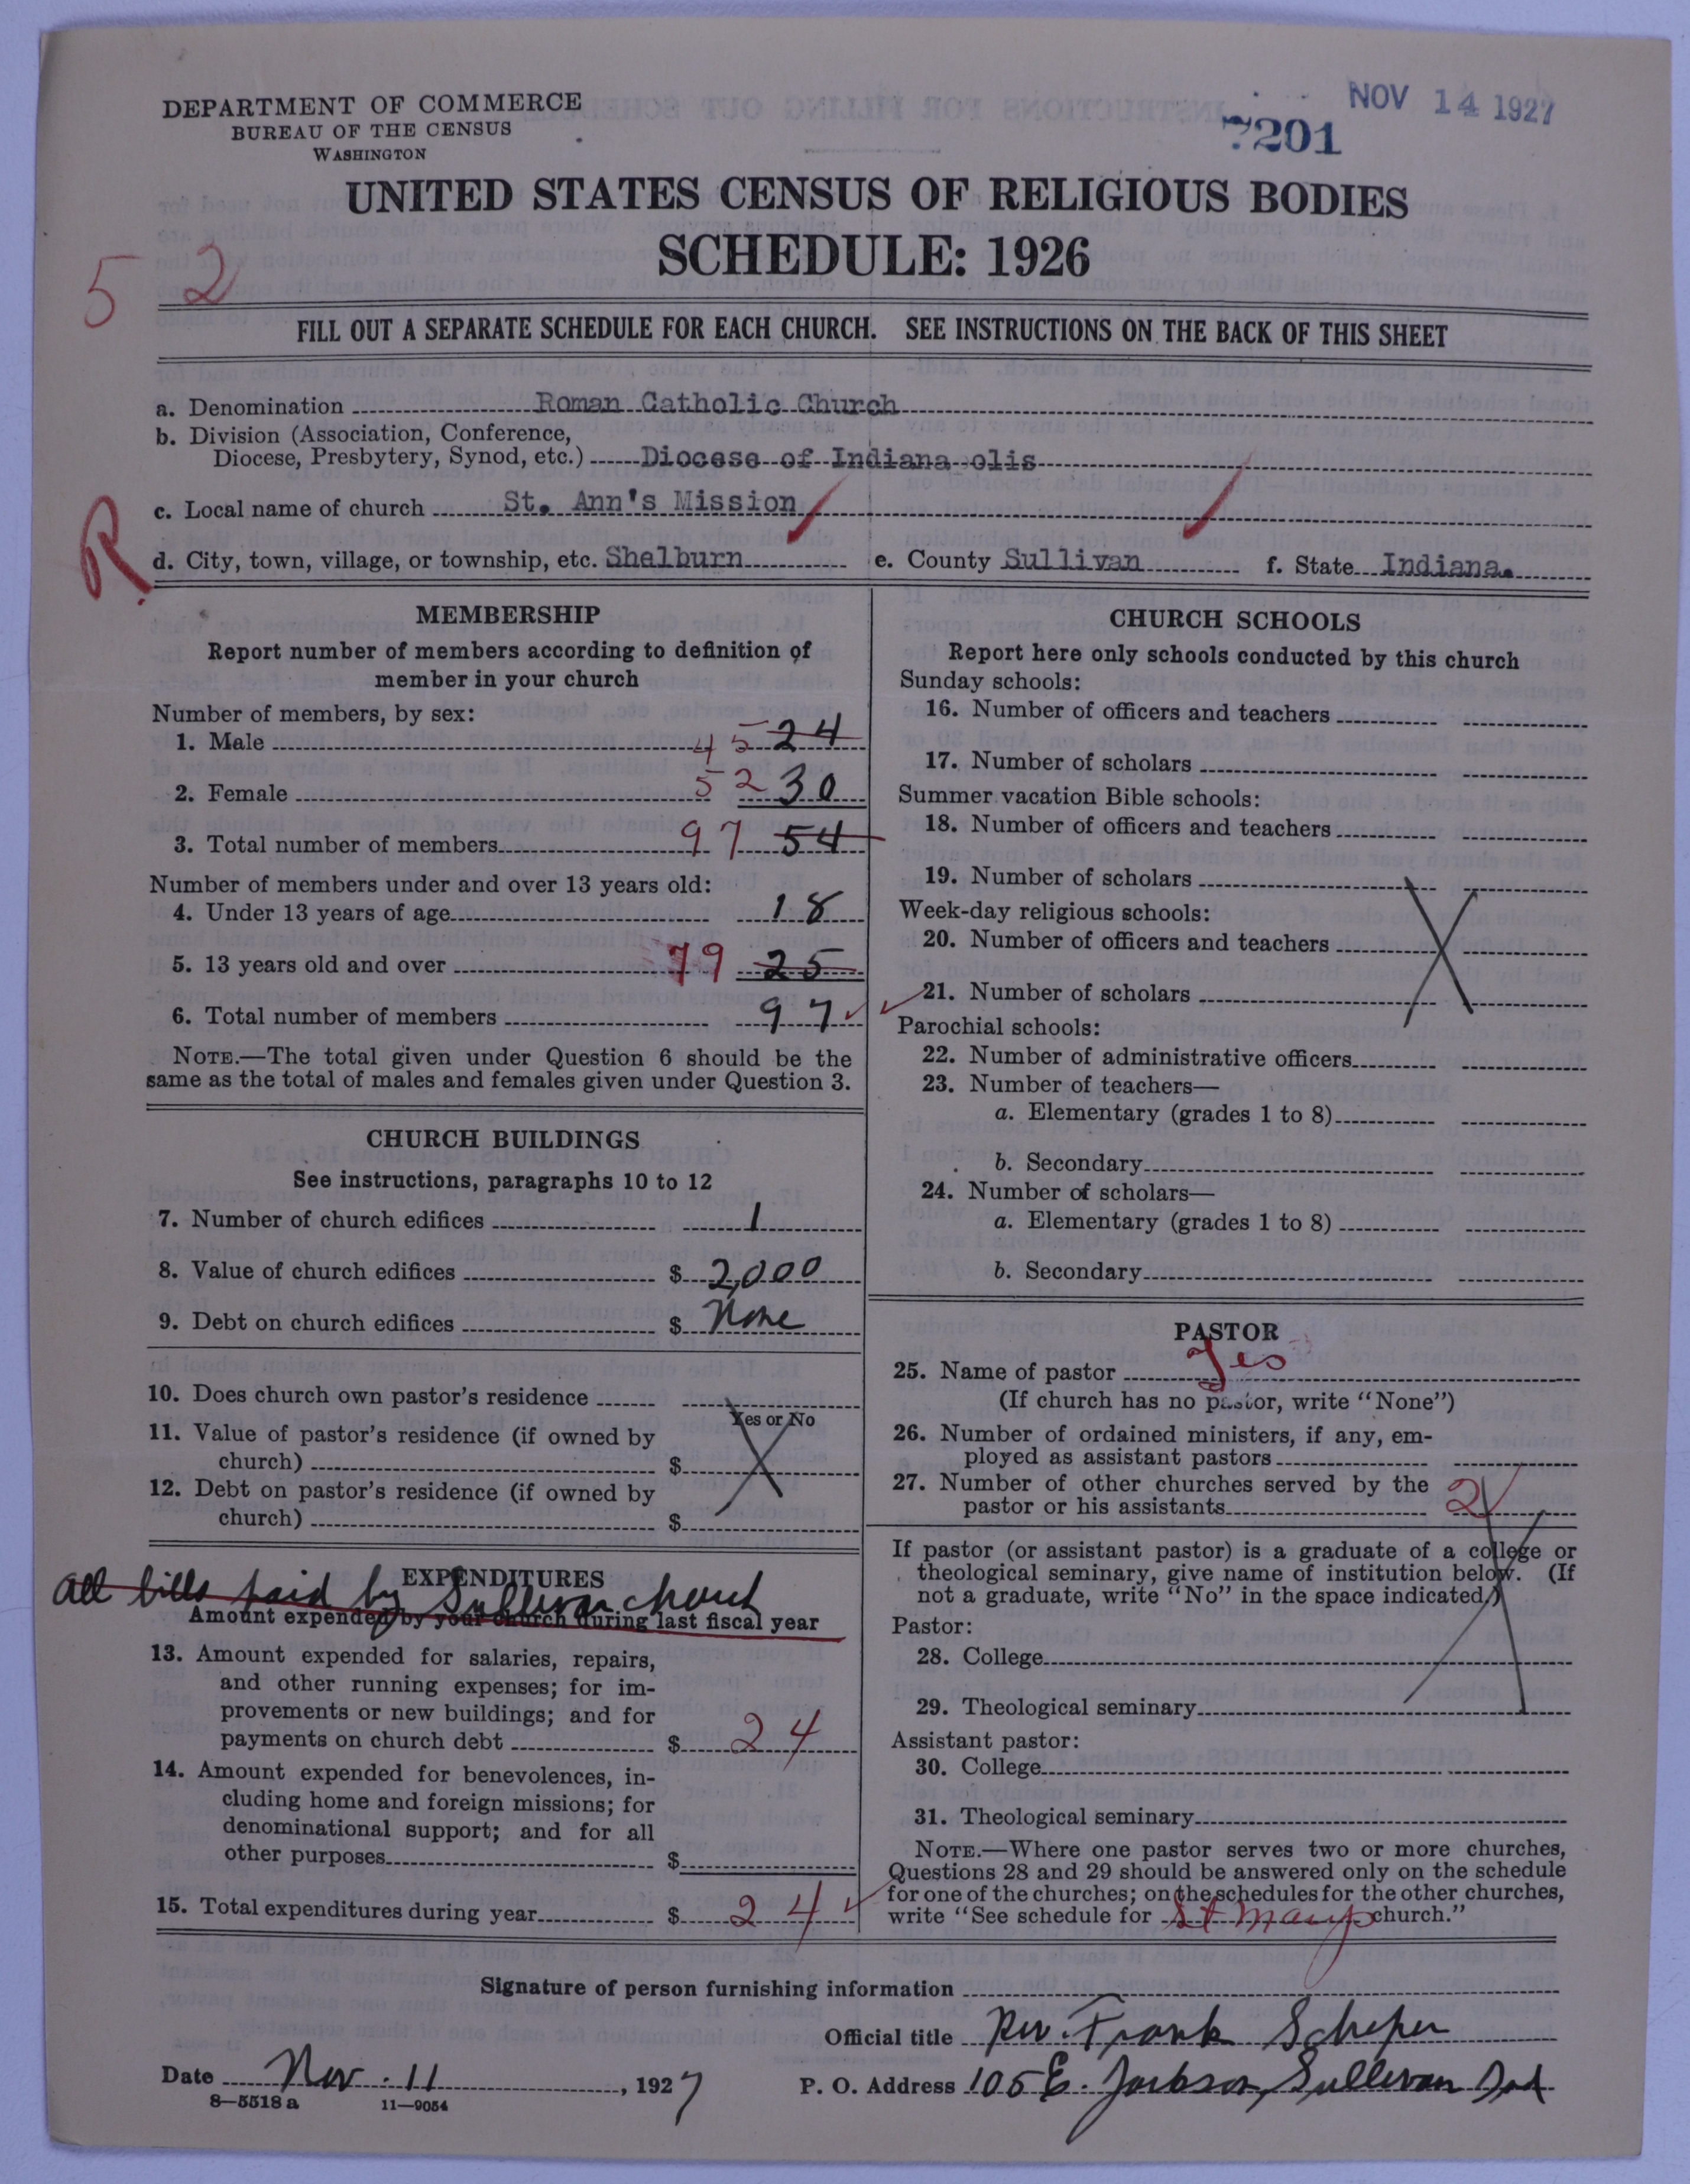 NOV 14 1927
7201
DEPARTMENT OF COMMERCE
BUREAU OF THE CENSUS
WASHINGTON
UNITED STATES CENSUS OF RELIGIOUS BODIES
SCHEDULE: 1926
5 2
FILL OUT A SEPARATE SCHEDULE FOR EACH CHURCH. SEE INSTRUCTIONS ON THE BACK OF THIS SHEET
a. Denomination Roman Catholic Church
b. Division (Association, Conference,
Diocese, Presbytery, Synod, etc.) Diocese of Indiana olis
c. Local name of church St. Ann's Mission
R
d. City, town, village, or township, etc. Shelburn e. County Sullivan f. State Indiana.
MEMBERSHIP
Report number of members according to definition of
member in your church
Number of members, by sex:
1. Male 45 24
2. Female 52 30
3. Total number of members 97 54
Number of members under and over 13 years old:
4. Under 13 years of age 18
5. 13 years old and over 79 25
6. Total number of members 97
NOTE.—The total given under Question 6 should be the
same as the total of males and females given under Question 3.
CHURCH BUILDINGS
See instructions, paragraphs 10 to 12
7. Number of church edifices 1
8. Value of church edifices $ 2,000
9. Debt on church edifices $ None
10. Does church own pastor's residence
Yes or No
11. Value of pastor's residence (if owned by
church) $
12. Debt on pastor's residence (if owned by
church) $
EXPENDITURES
All bills paid by Sullivan church
Amount expended by your church during last fiscal year
13. Amount expended for salaries, repairs,
and other running expenses; for im-
provements or new buildings; and for
payments on church debt $ 24
14. Amount expended for benevolences, in-
cluding home and foreign missions; for
denominational support; and for all
other purposes $
15. Total expenditures during year $ 24
CHURCH SCHOOLS
Report here only schools conducted by this church
Sunday schools:
16. Number of officers and teachers
17. Number of scholars
Summer vacation Bible schools:
18. Number of officers and teachers
19. Number of scholars
Week-day religious schools:
20. Number of officers and teachers
21. Number of scholars
Parochial schools:
22. Number of administrative officers
23. Number of teachers—
a. Elementary (grades 1 to 8)
b. Secondary
24. Number of scholars—
a. Elementary (grades 1 to 8)
b. Secondary
PASTOR
25. Name of pastor Yes
(If church has no pastor, write "None")
26. Number of ordained ministers, if any, em-
ployed as assistant pastors
27. Number of other churches served by the
pastor or his assistants 2
If pastor (or assistant pastor) is a graduate of a college or
theological seminary, give name of institution below. (If
not a graduate, write "No" in the space indicated.)
Pastor:
28. College
29. Theological seminary
Assistant pastor:
30. College
31. Theological seminary
NOTE.—Where one pastor serves two or more churches,
Questions 28 and 29 should be answered only on the schedule
for one of the churches; on the schedules for the other churches,
write "See schedule for St Marys church."
Signature of person furnishing information
Official title Rev. Frank Scheper
Date Nov. 11, 1927 P. O. Address 105 E. Jackson, Sullivan Ind
8—5518 a 11—9054